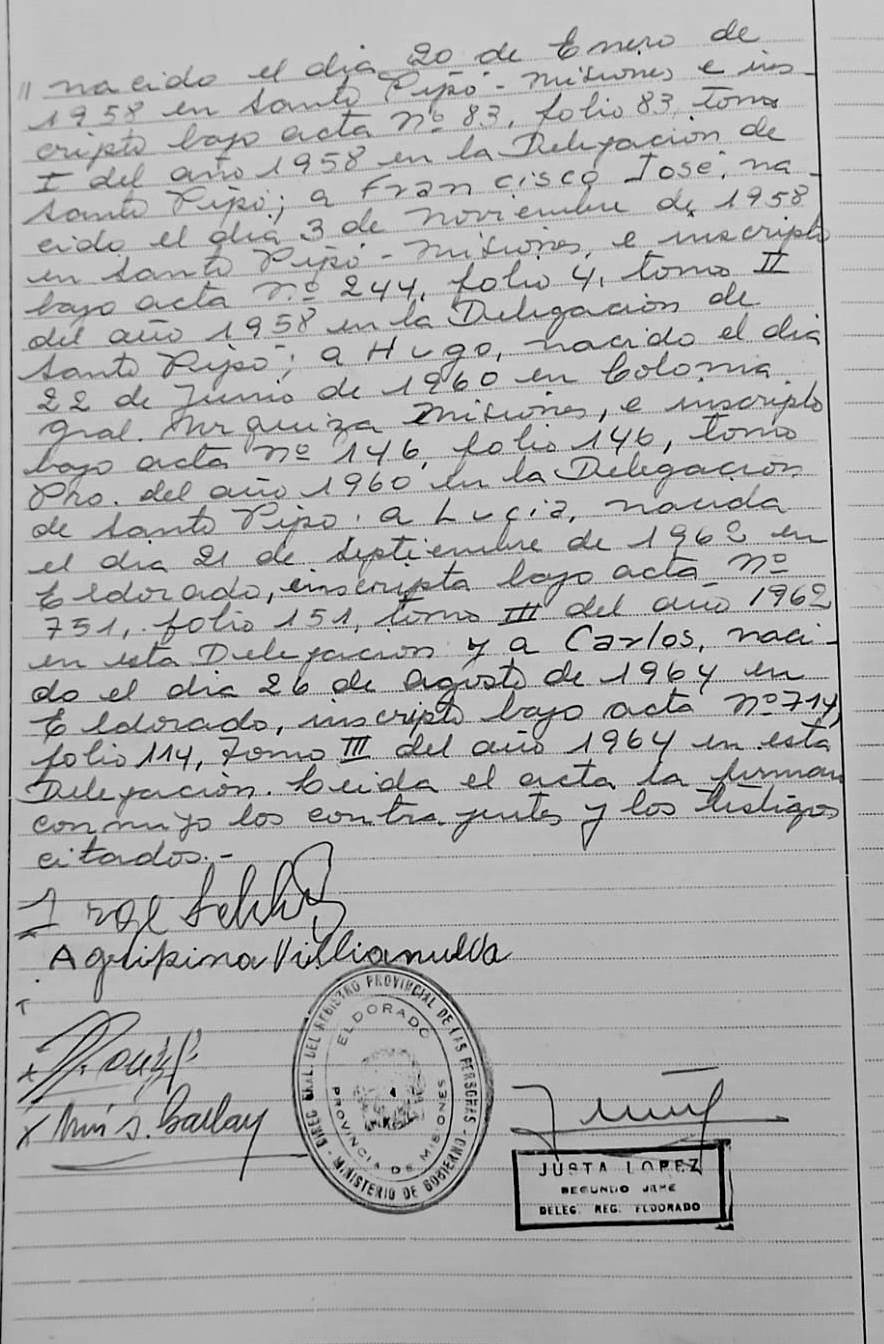 " nacido el día 20 de Enero de
1958 en Santo Pipó - Misiones e ins-
cripto bajo acta nº 83, folio 83, tomo
I del año 1958 en la Delegación de
Santo Pipó; a Francisco José, na-
cido el día 3 de noviembre de 1958
en Santo Pipó - Misiones, e inscripto
bajo acta nº 244, folio 4, tomo II
del año 1958 en la Delegación de
Santo Pipó; a Hugo, nacido el día
22 de Junio de 1960 en Colonia
Gral. Urquiza Misiones, e inscripto
bajo acta nº 146, folio 146, tomo
Pro. del año 1960 en la Delegación
de Santo Pipó. a Lucía, nacida
el día 21 de Septiembre de 1962 en
Eldorado, e inscripta bajo acta nº
751, folio 151, tomo III del año 1962
en esta Delegación y a Carlos, naci-
do el día 26 de Agosto de 1964 en
Eldorado, inscripto bajo acta nº 714,
folio 114, Tomo III del año 1964 en esta
Delegación. Leida el acta la firman
conmigo los contrayentes y los testigos
citados.-
Agripina Villianueva
DIREC. GRAL. DEL REGISTRO PROVINCIAL DE LAS PERSONAS - MINISTERIO DE GOBIERNO -
ELDORADO
PROVINCIA DE MISIONES
JUSTA LOPEZ
SEGUNDO JEFE
DELEG. REG. ELDORADO